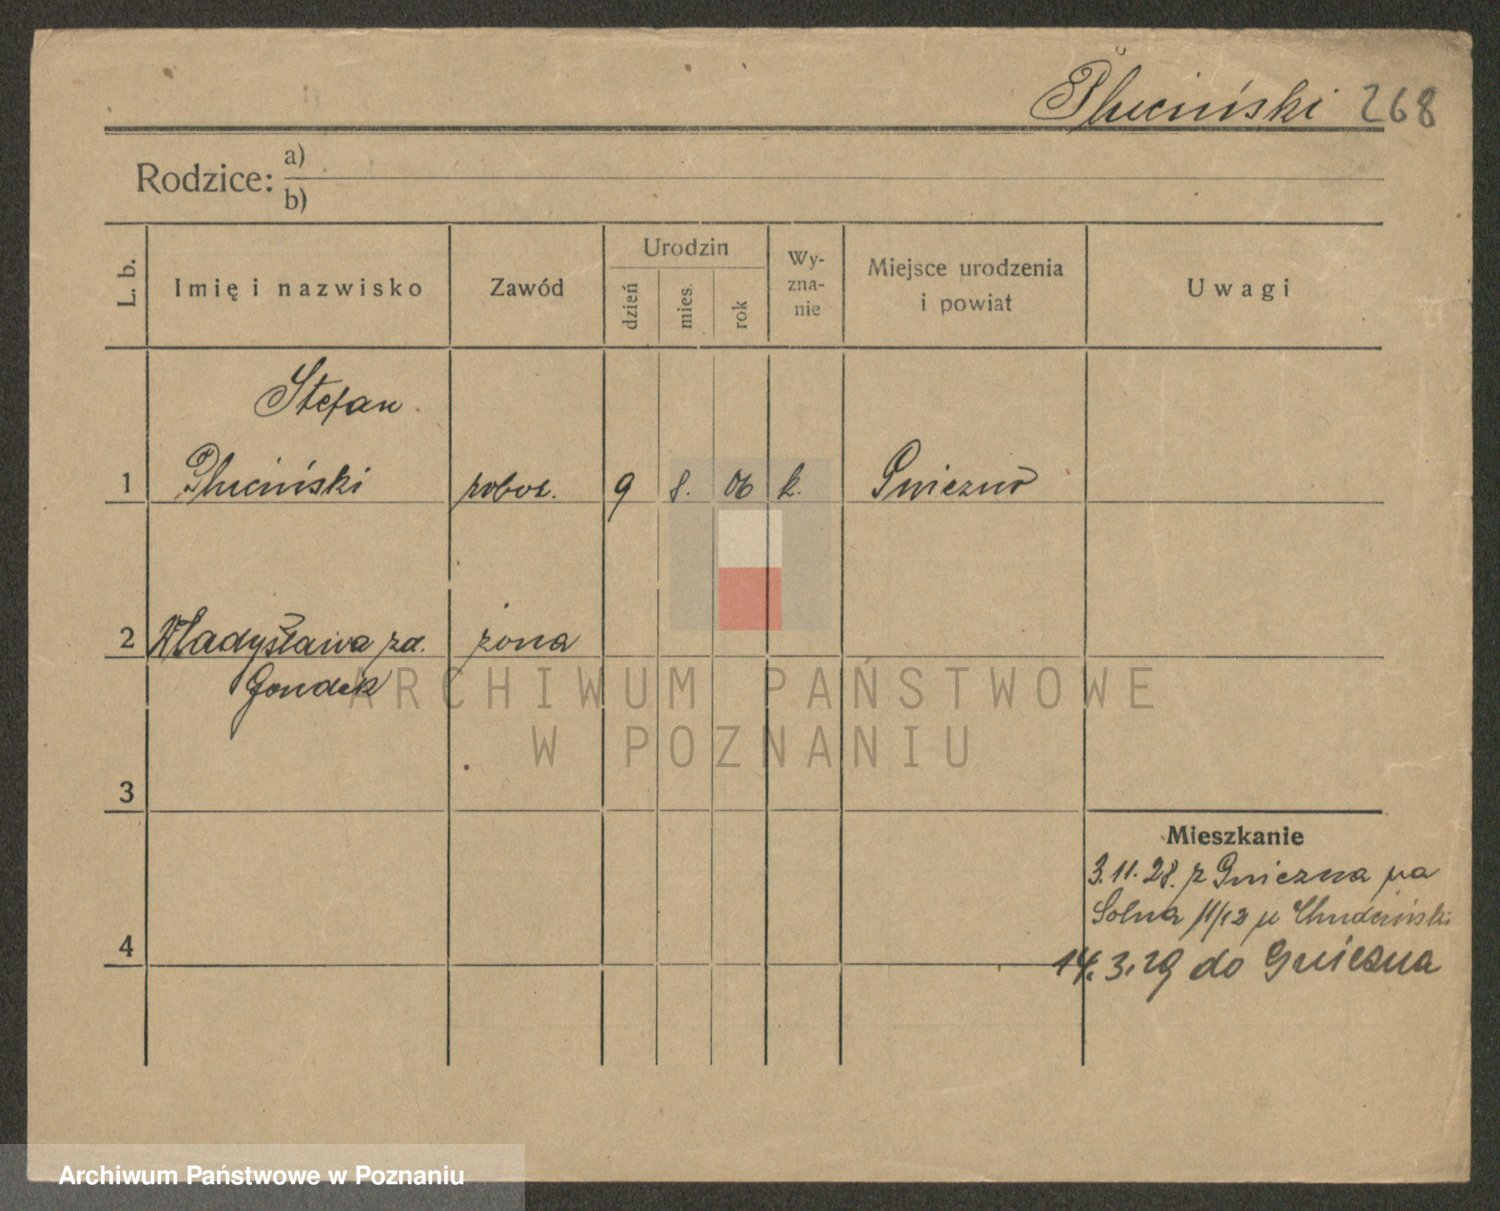 Pluciński 268
Rodzice: a)
b)
L. b. Imię i nazwisko Zawód Urodzin dzień mies. rok Wy-zna-nie Miejsce urodzenia i powiat Uwagi
Stefan
1 Pluciński robot. 9 8. 06 k. Gniezno
2 Władysława zd. żona
Gondek
ARCHIWUM PAŃSTWOWE
W POZNANIU
3
Mieszkanie
3.11.28. z Gniezna na
Solna 11/12 u Chudziński
4
14.3.29 do Gniezna
Archiwum Państwowe w Poznaniu